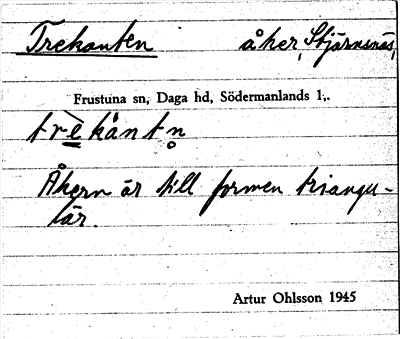 Trekanten åker, Stjärnsnäs,
Frustuna sn, Daga hd, Södermanlands l.
trèkànt̥n
Åkern är till formen triangu-
lär.
Artur Ohlsson 1945